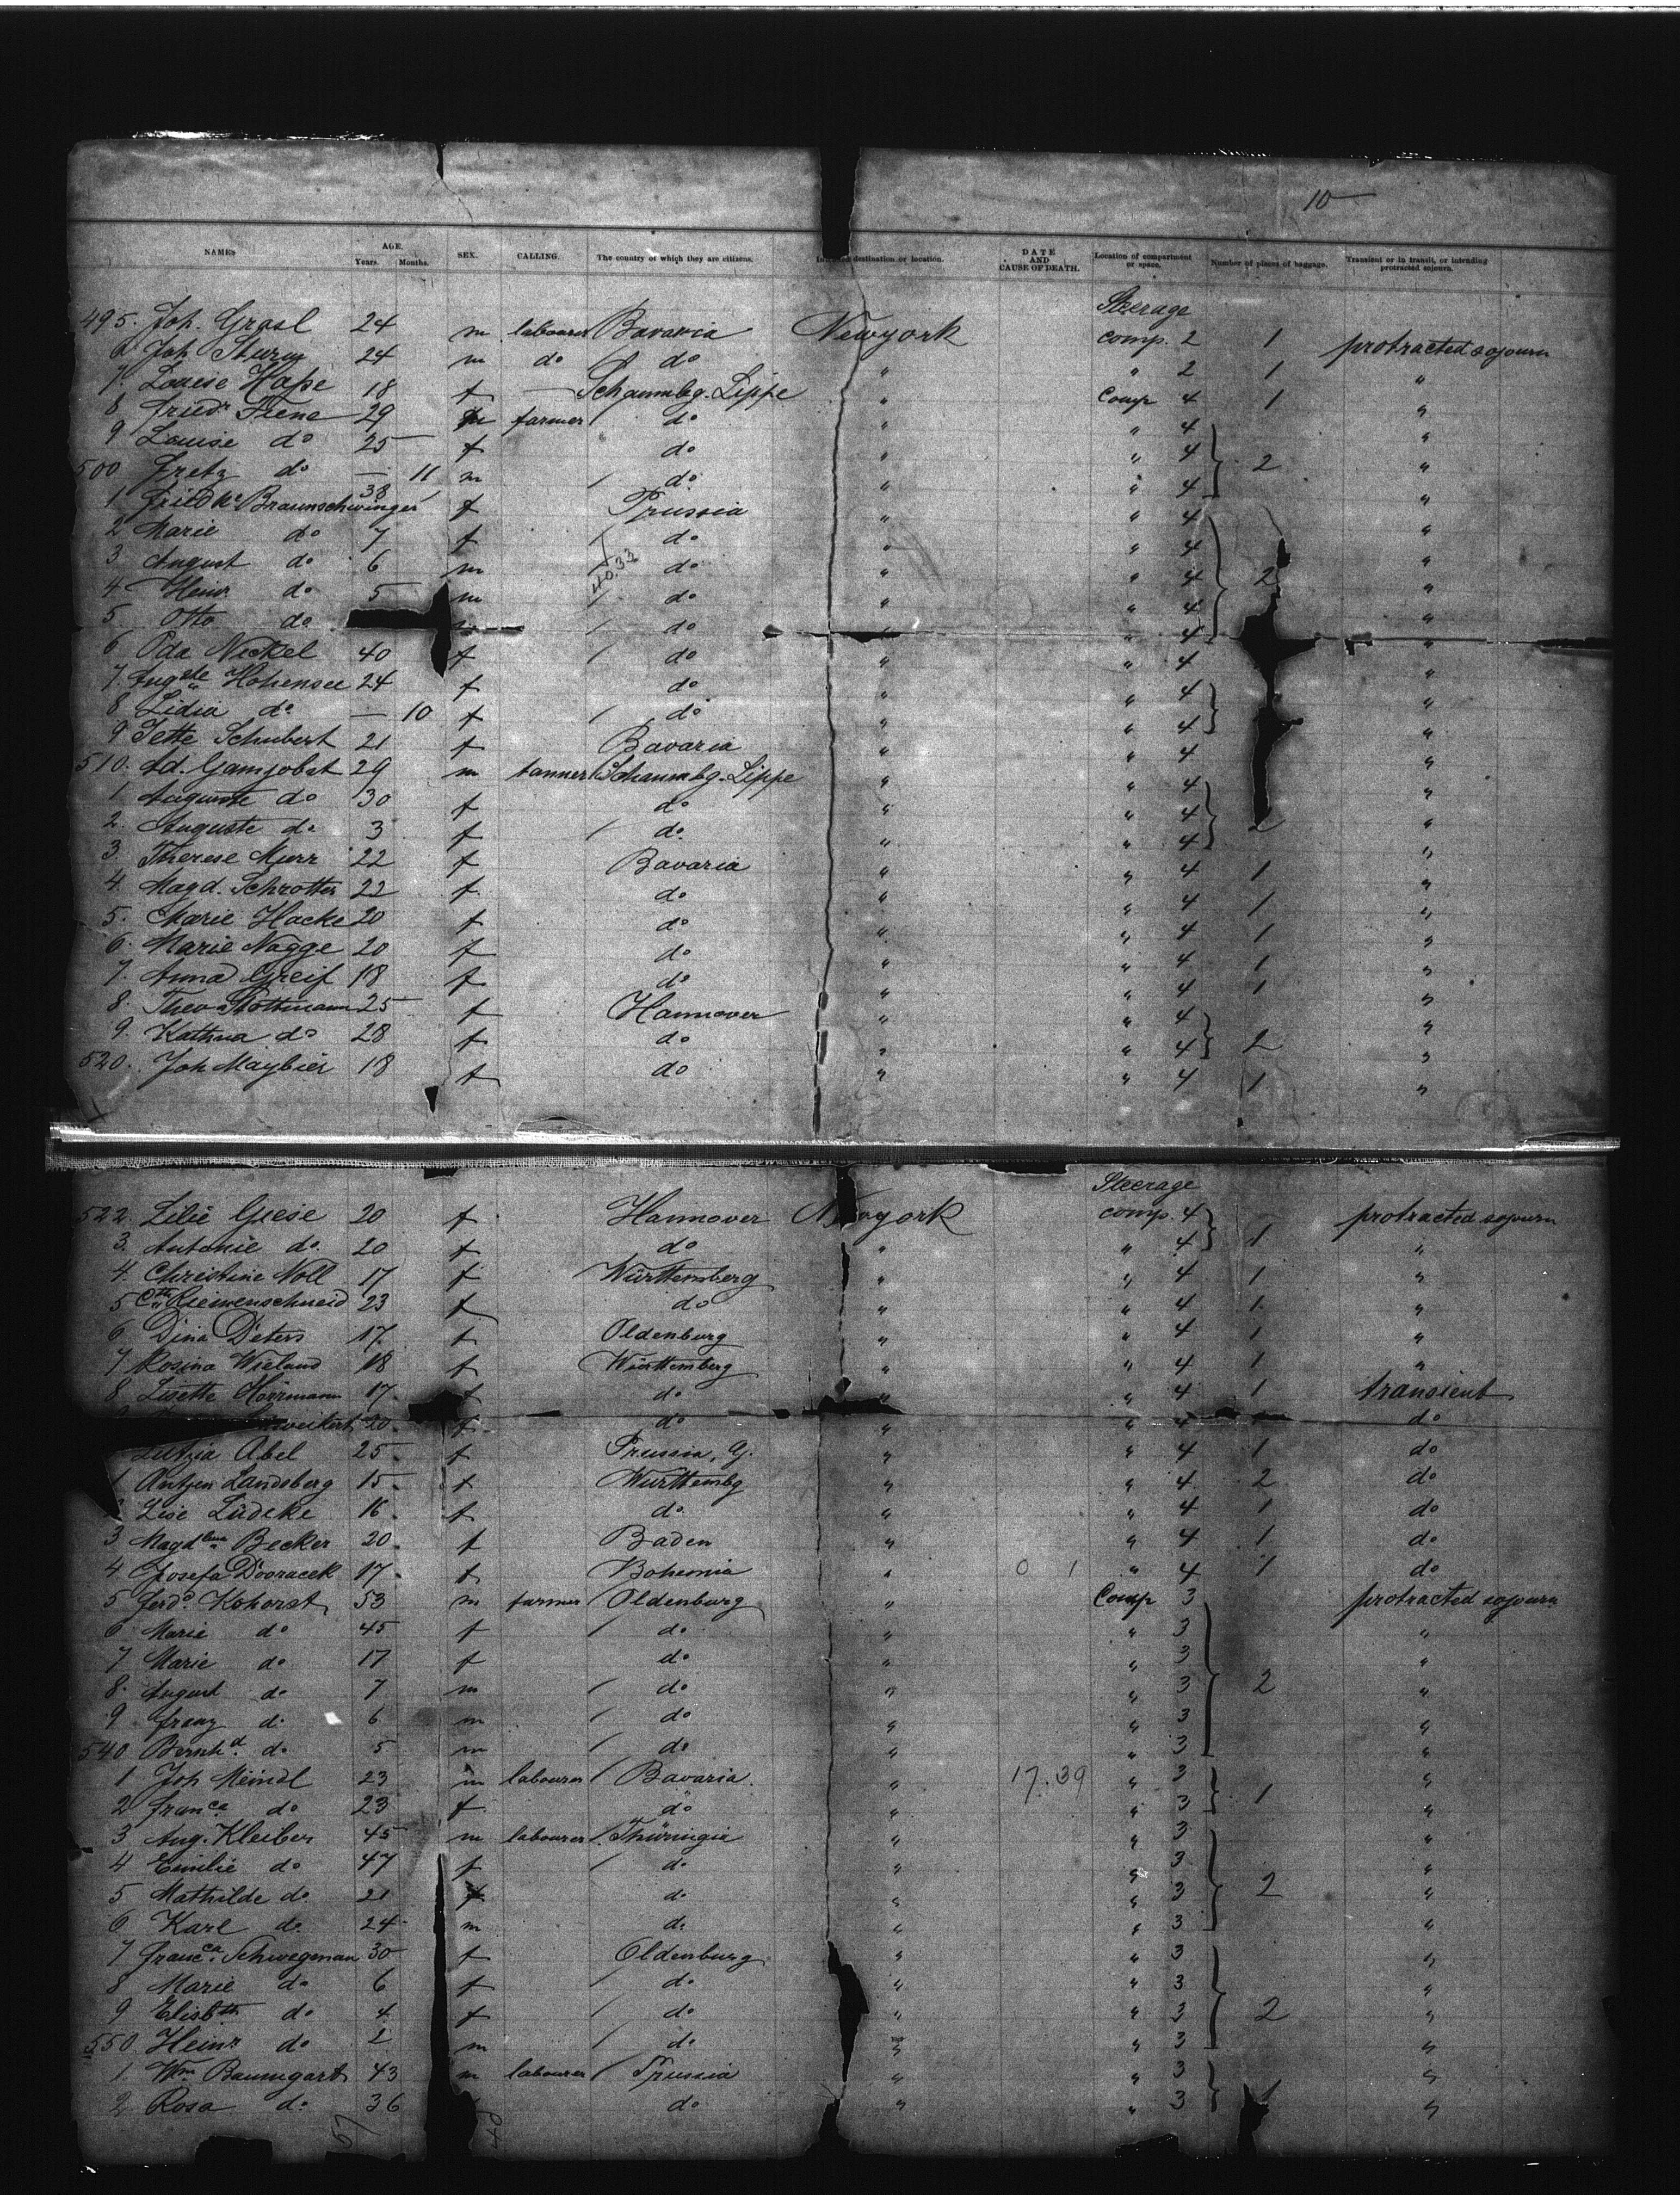 10
NAMES AGE. Years. Months. SEX. CALLING. The country of which they are citizens. destination or location. DATE AND CAUSE OF DEATH. Location of compartment or space. Number of pieces of baggage. Transient or in transit, or intending protracted sojourn.
Steerage
495. Joh. Grasl 24 m labourer Bavaria Newyork comp. 2 1 protracted sojourn
6 Joh Sturm 24 m do do " " 2 1 "
7. Louise Hape 18 f — Schaumbg. Lippe " Comp 4 1 "
8 Friedr. 29 m farmer do " " 4 "
9 Louise do 25 f do " " 4 2 "
500 Fretz do — 11 m do " " 4 "
1 Friedke Braunschwinger 38 f Prussia " " 4 "
2 Marie do 7 f do " " 4 "
3 August do 6 m do " " 4 2 "
4 Heinr. do 5 m do " " 4 "
5 Otto do do " " 4 "
6 Oda Nickel 40 f do " " 4 "
7. Augste Hohensee 24 f do " " 4 "
8 Lidia do — 10 f do " " 4 "
9 Jette Schubert 21 f Bavaria " " 4 "
510. Ad. Gamjobst 29 m tanner Schaumbg. Lippe " " 4 "
1 Auguste do 30 f do " " 4 "
2. Auguste do 3 f do " " 4 2 "
3. Therese Murr 22 f Bavaria " " 4 1 "
4. Magd. Schrotter 22 f do " " 4 1 "
5. Marie Hacke 20 f do " " 4 1 "
6. Marie Nagge 20 f do " " 4 1 "
7. Anna Greif 18 f do " " 4 1 "
8. Theo Stottmann 25 f Hannover " " 4 "
9. Kathna do 28 f do " " 4 2 "
520. Joh Maybier 18 f do " " 4 1 "
Steerage
522. Lilie Giese 20 f Hannover Newyork comp. 4 protracted sojourn
3. Antonie do. 20 f do " " 4 1 "
4. Christine Noll 17 f Württemberg " " 4 1 "
5 Cth. Riemenschneid 23 f do " " 4 1 "
6 Dina Deters 17. f Oldenburg " " 4 1 "
7 Rosina Wieland 18 f Württemberg " " 4 1 "
8 Lisette Horrmann 17. f do " " 4 1 transient
20. f do " " 4 do
Abel 25. f Prussia, G. " " 4 1 do
1 Antjen Landsberg 15. f Wurttembg " " 4 2 do
2 Lise Lüdeke 16. f do. " " 4 1 do
3 Magdlena Becker 20. f Baden " " 4 1 do
4 Josefa Dvoracek 17. f Bohemia " 0 1 " 4 1 do
5 Ferdd. Kohorst 53 m farmer Oldenburg " Comp 3 protracted sojourn
6 Marie do 45 f do " " 3 "
7 Marie do 17 f do " " 3 "
8. August do 7 m do " " 3 2 "
9 Franz do 6 m do " " 3 "
540 Bernhd. do 5 m do " " 3 "
1 Joh Meindl 23 m labourer Bavaria. " 17.39 " 3 "
2 Franca. do 23 f do " " 3 1 "
3 Aug. Kleiber 45 m labourer Thüringia " " 3 "
4 Emilie do 47 f do " " 3 "
5 Mathilde do 21 f do " " 3 2 "
6 Karl do 24 m do " " 3 "
7 Franca. Schwegman 30 f Oldenburg " " 3 "
8 Marie do 6 f do " " 3 "
9 Elisbth do 4 f do " " 3 2 "
550 Heinr do 2 m do " " 3 "
1 Wm. Baumgart 43 m labourer Prussia " " 3 "
2 Rosa do 36 do " " 3 1 "